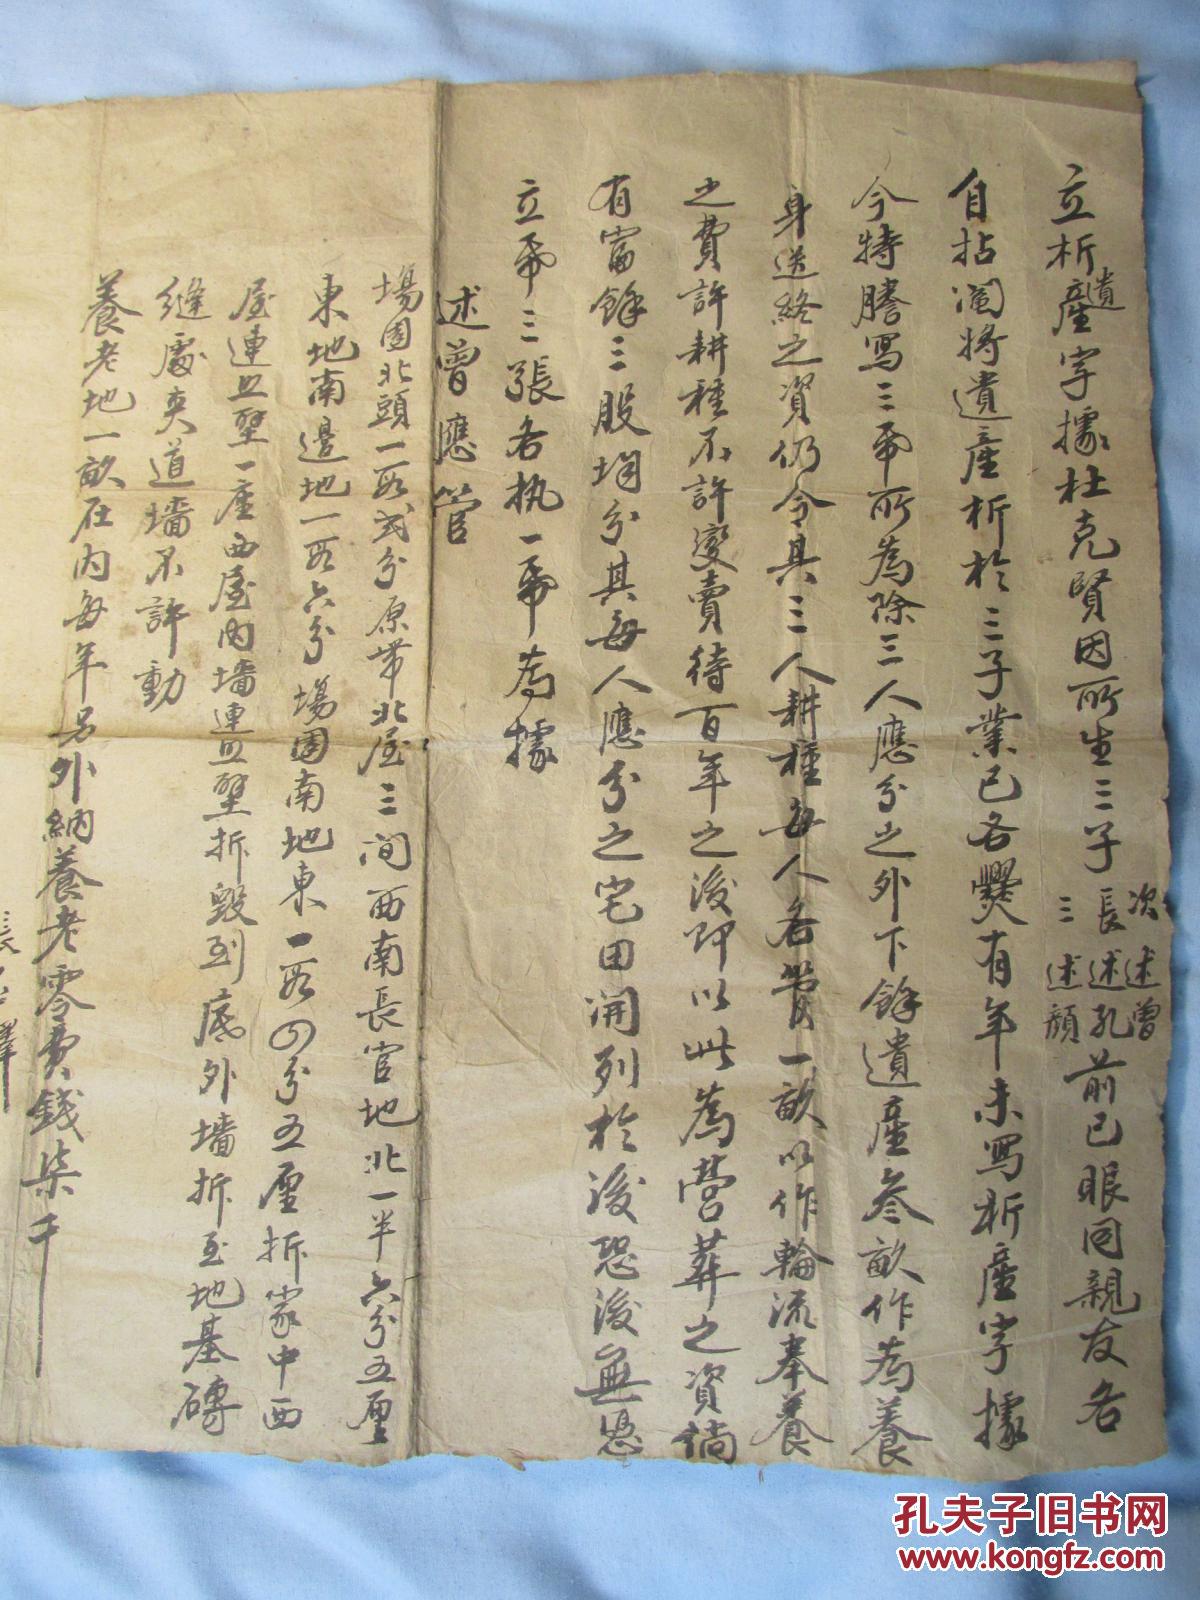 立析遺產字據杜克賢因所生三子長述孔次述曾三述顏前已眼同親友各
自拈阄將遺產析於三子業已各爨有年未寫析產字據
今特謄寫三帋所為除三人應分之外下餘遺產叁畝作為養
身送終之資仍令其三人耕種每人各管一畝以作輪流奉養
之費許耕種不許變賣待百年之後即以此為營葬之資倘
有富餘三股均分其每人應分之宅田開列於後恐後無憑
立帋三張各执一帋為據
述曾應管
場園北頭一段弍分原帶北屋三间西南長官地北一半六分五厘
東地南邊地一段六分場園南地東一段四分五厘拆家中西
屋連二墼一座西屋內墻連二墼拆毀到底外墻拆至地基磚
縫處夾道墻不許動
養老地一畝在內每年另外納養老零費錢柒千
孔夫子旧书网
www.kongfz.com